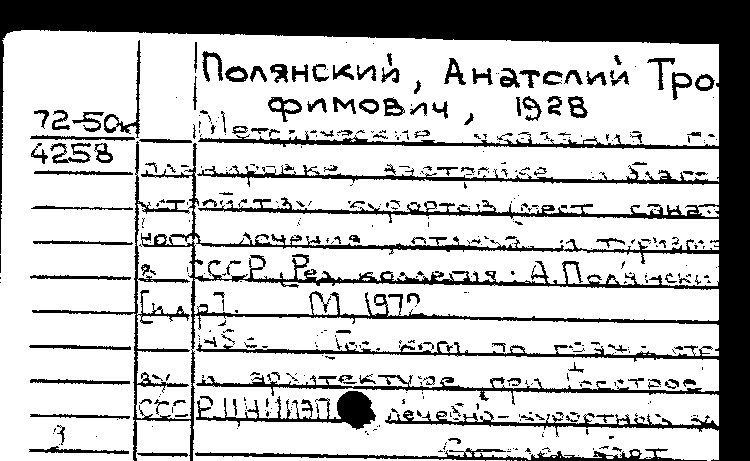 Полянский, Анатолий Тро-
фимович, 1928
72-50к Методические указания по
4258 планировке, застройке и благо-
устройству курортов (мест санат
ного лечения, отдыха и туризма
в СССР. Ред. коллегия: А.Полянский
[и др]. М, 1972
145 с. (Гос. ком. по гражд. стр-
ву и архитектуре при Госстрое
СССР ЦНИИЭП лечебно-курортных
9 След. карт